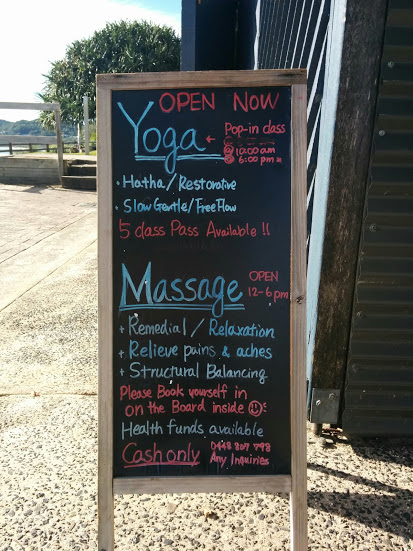 OPEN NOW
Yoga ← Pop-in class
@ 10:00 am
@ 6:00 pm
+ Hatha/Restorative
+ Slow Gentle/Free Flow
5 class Pass Available !!
Massage OPEN
12-6 pm
+ Remedial / Relaxation
+ Relieve pains & aches
+ Structural Balancing
Please Book yourself in
on the Board inside
Health funds available
Cash only 0448 807 798
Any Inquiries